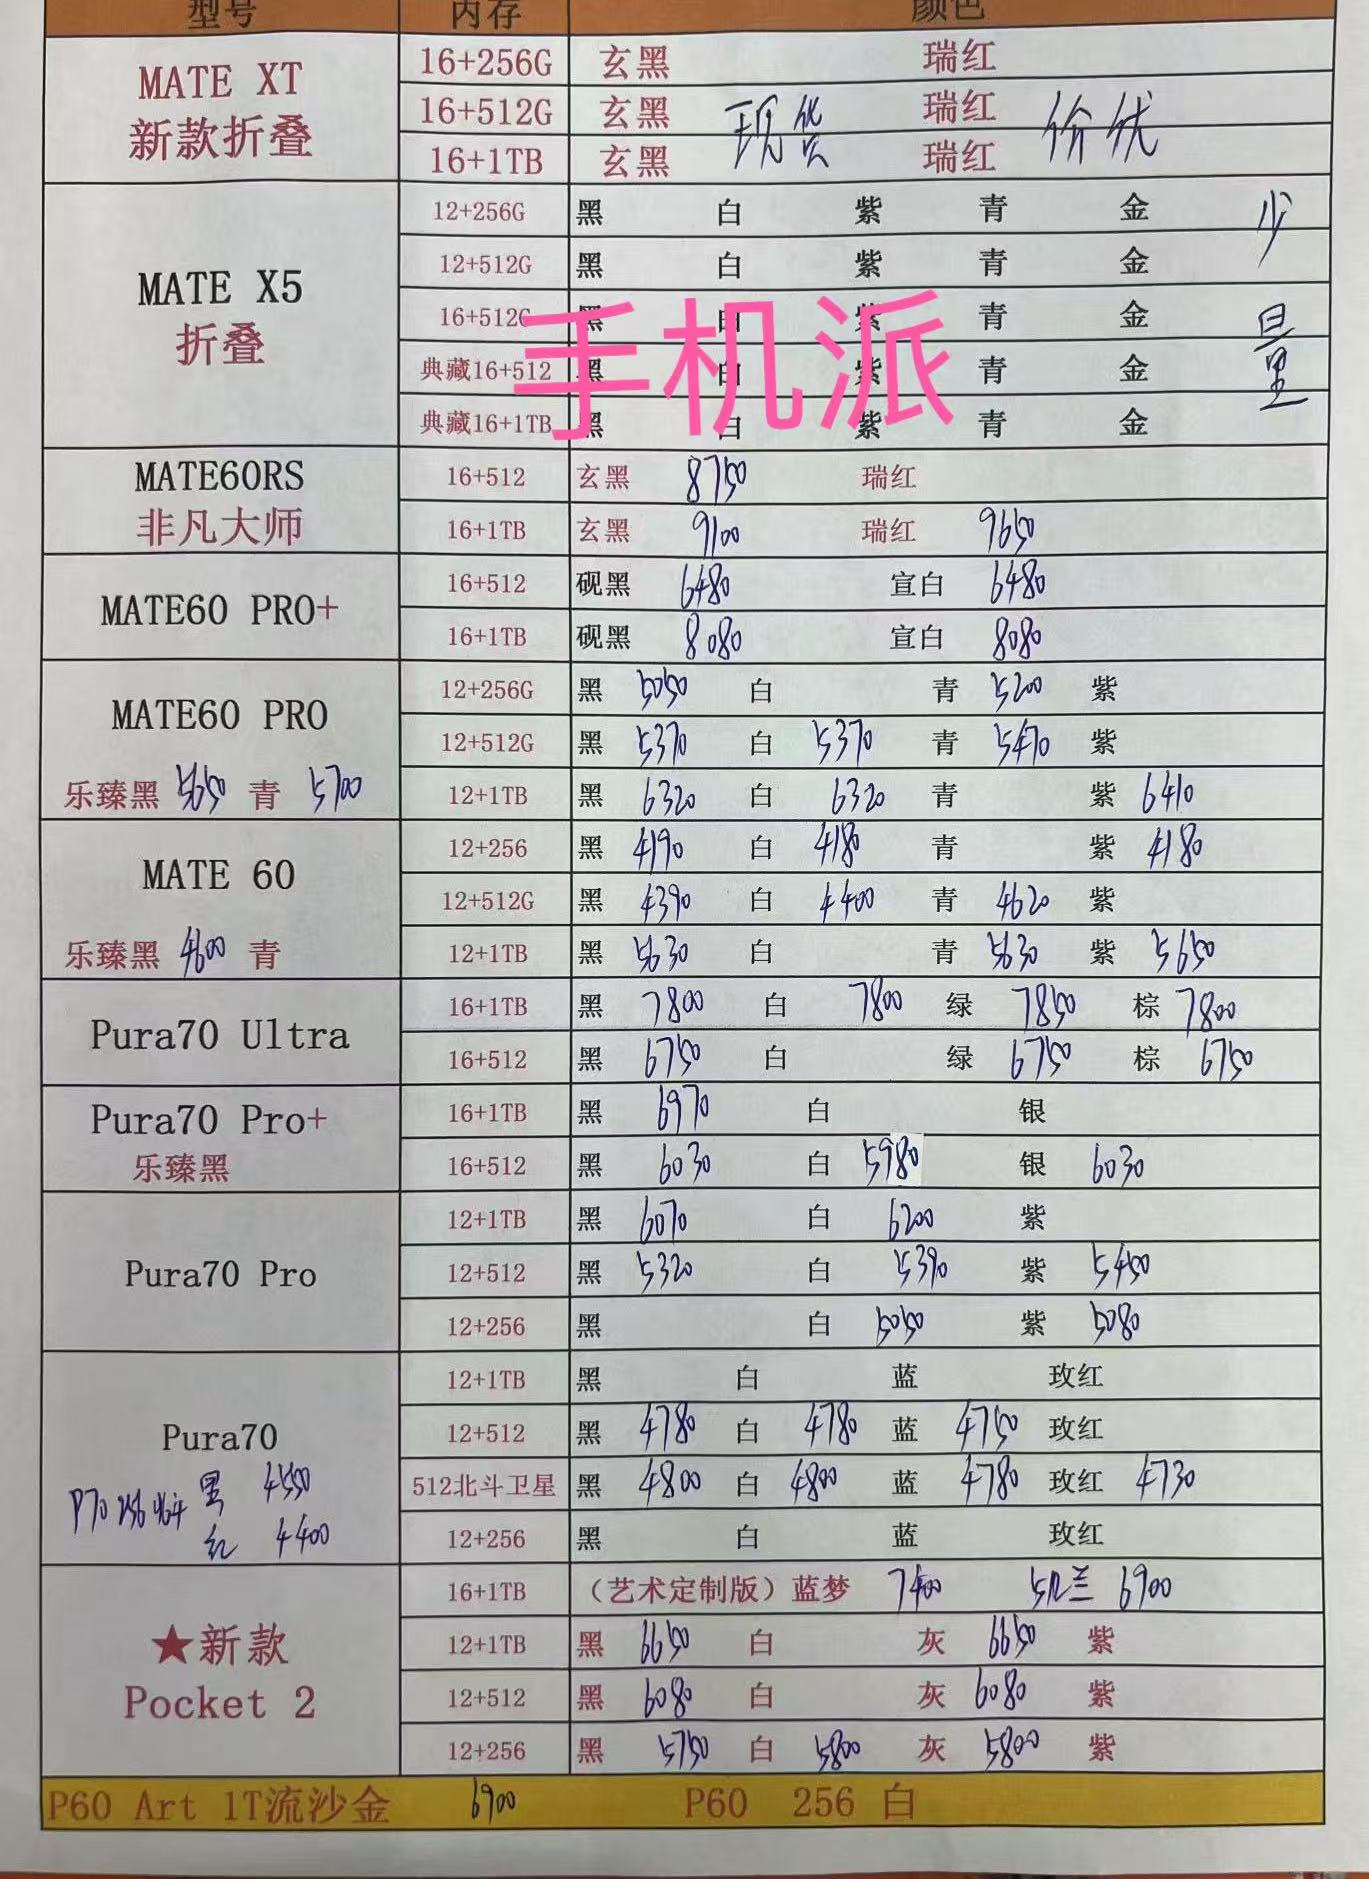 型号 内存 颜色
MATE XT
新款折叠
16+256G 玄黑 瑞红
16+512G 玄黑 瑞红
现货 价优
16+1TB 玄黑 瑞红
MATE X5
折叠
12+256G 黑 白 紫 青 金
12+512G 黑 白 紫 青 金
16+512G 黑 白 紫 青 金
典藏16+512 黑 白 紫 青 金
典藏16+1TB 黑 白 紫 青 金
少量
手机派
MATE60RS
非凡大师
16+512 玄黑 8750 瑞红
16+1TB 玄黑 9100 瑞红 9650
MATE60 PRO+
16+512 砚黑 6480 宣白 6480
16+1TB 砚黑 8080 宣白 8080
MATE60 PRO
乐臻黑 5650 青 5700
12+256G 黑 5050 白 青 5200 紫
12+512G 黑 5370 白 5370 青 5470 紫
12+1TB 黑 6320 白 6320 青 紫 6410
MATE 60
乐臻黑 4600 青
12+256 黑 4190 白 4180 青 紫 4180
12+512G 黑 4390 白 4400 青 4620 紫
12+1TB 黑 5630 白 青 5630 紫 5650
Pura70 Ultra
16+1TB 黑 7800 白 7800 绿 7850 棕 7800
16+512 黑 6750 白 绿 6750 棕 6750
Pura70 Pro+
乐臻黑
16+1TB 黑 6970 白 银
16+512 黑 6030 白 5980 银 6030
Pura70 Pro
12+1TB 黑 6070 白 6200 紫
12+512 黑 5320 白 5390 紫 5450
12+256 黑 白 5050 紫 5080
Pura70
P70 256 北斗 黑 4550
红 4400
12+1TB 黑 白 蓝 玫红
12+512 黑 4780 白 4780 蓝 4750 玫红
512北斗卫星 黑 4800 白 4800 蓝 4780 玫红 4730
12+256 黑 白 蓝 玫红
★新款
Pocket 2
16+1TB （艺术定制版）蓝梦 7400 玑兰 6900
12+1TB 黑 6650 白 灰 6650 紫
12+512 黑 6080 白 灰 6080 紫
12+256 黑 5750 白 5800 灰 5800 紫
P60 Art 1T流沙金 6900 P60 256 白